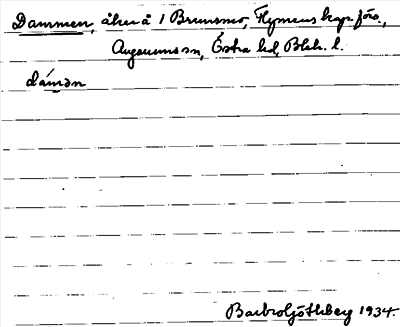 Dammen, åker å 1 Brunsmo, Flymens kap. förs.,
Augerums sn, Östra hd, Blek. l.
dámən
Barbro Ljóthberg 1934.